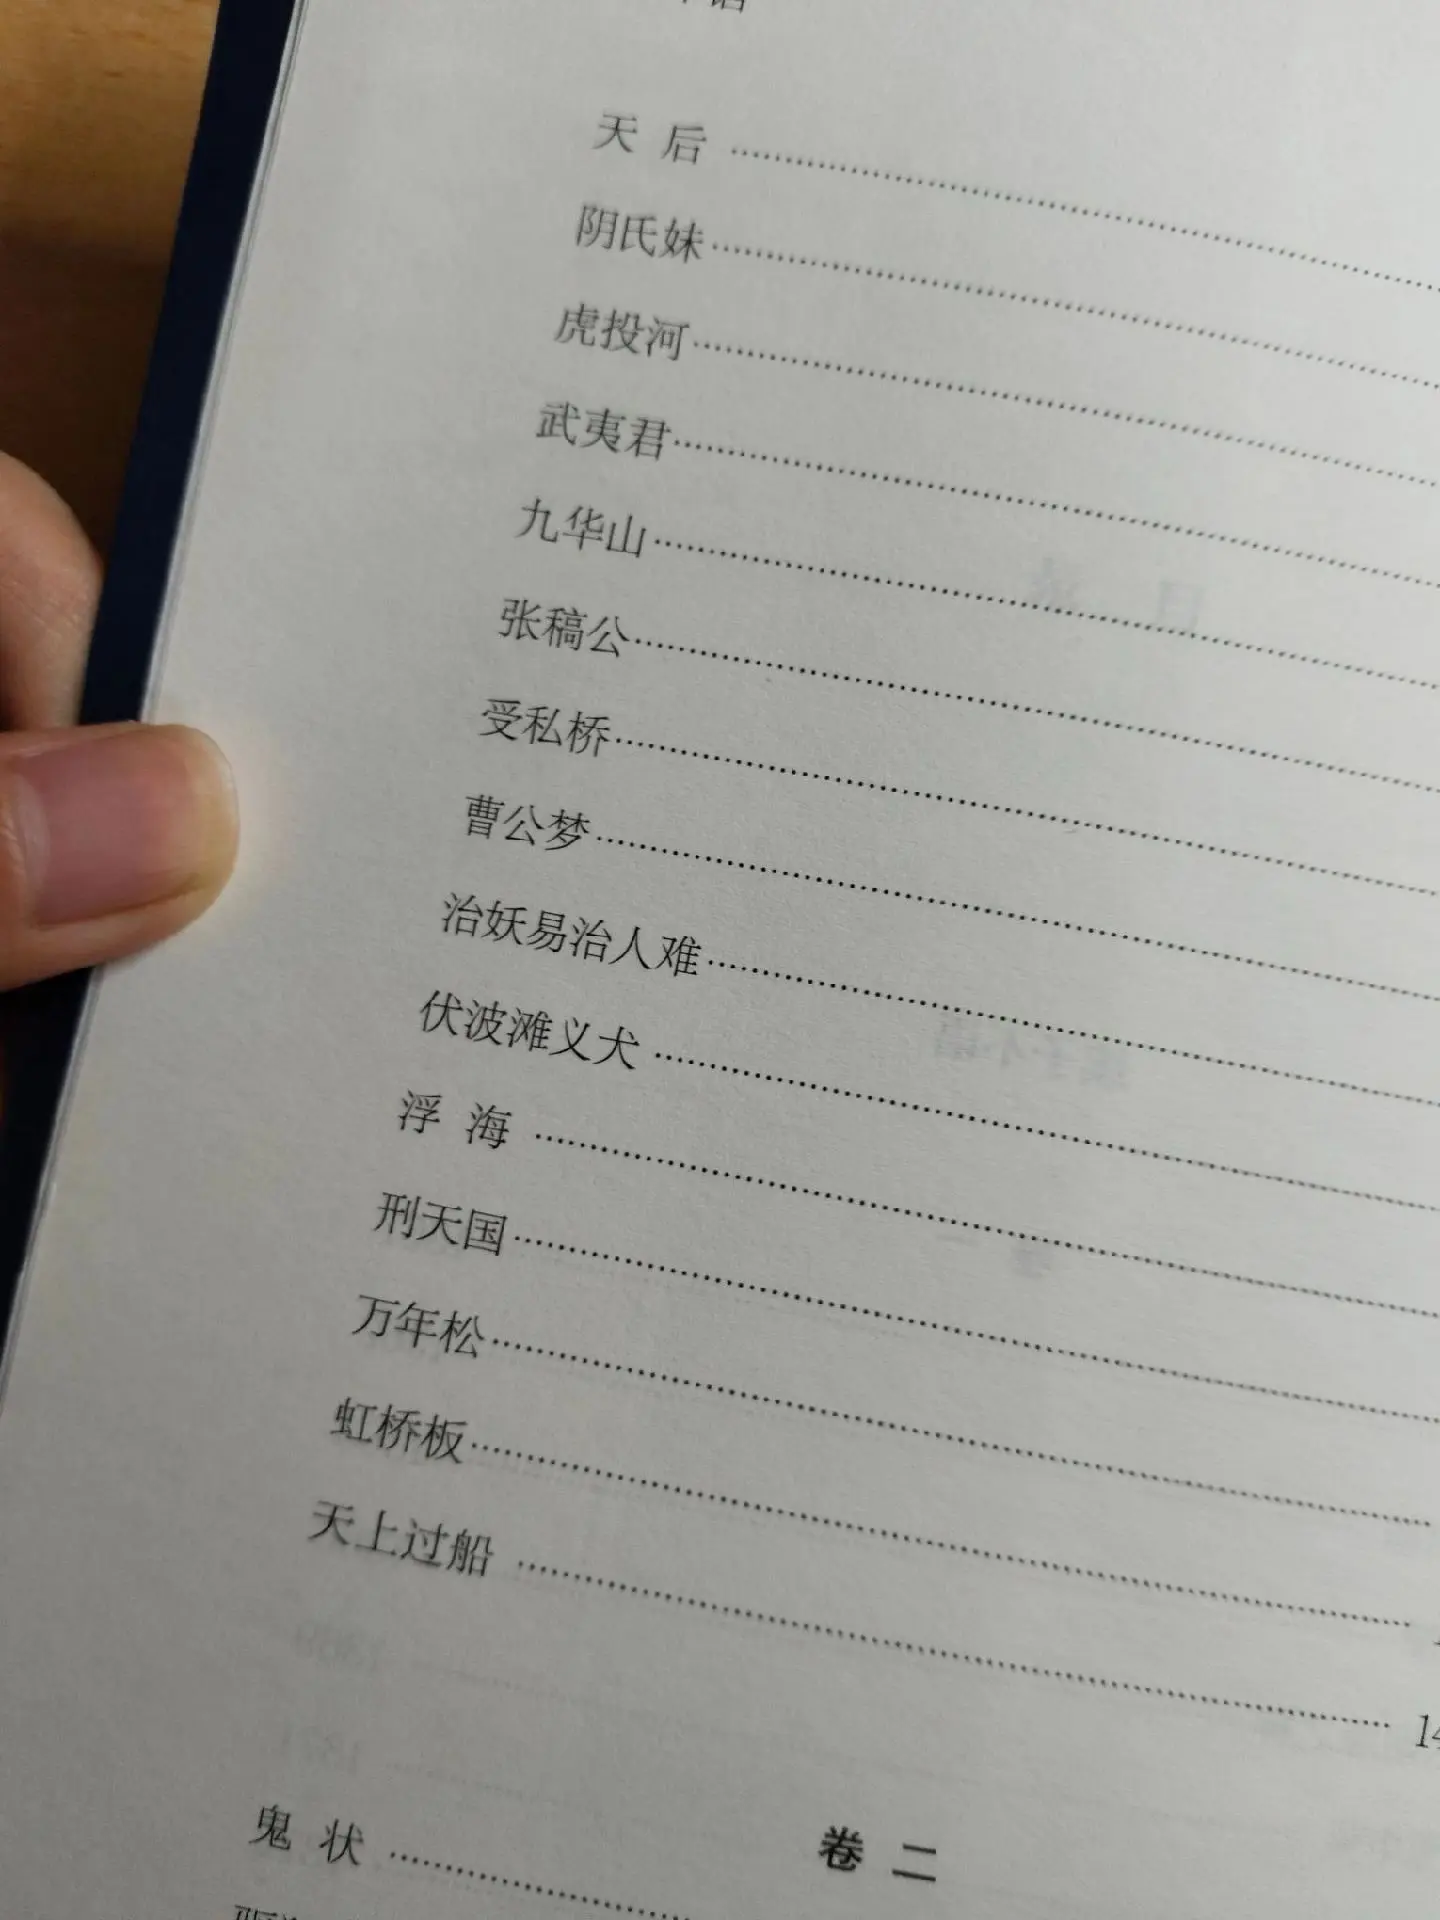 天 后
阴氏妹
虎投河
武夷君
九华山
张稿公
受私桥
曹公梦
治妖易治人难
伏波滩义犬
浮 海
刑天国
万年松
虹桥板
天上过船 14
卷 二
鬼 状